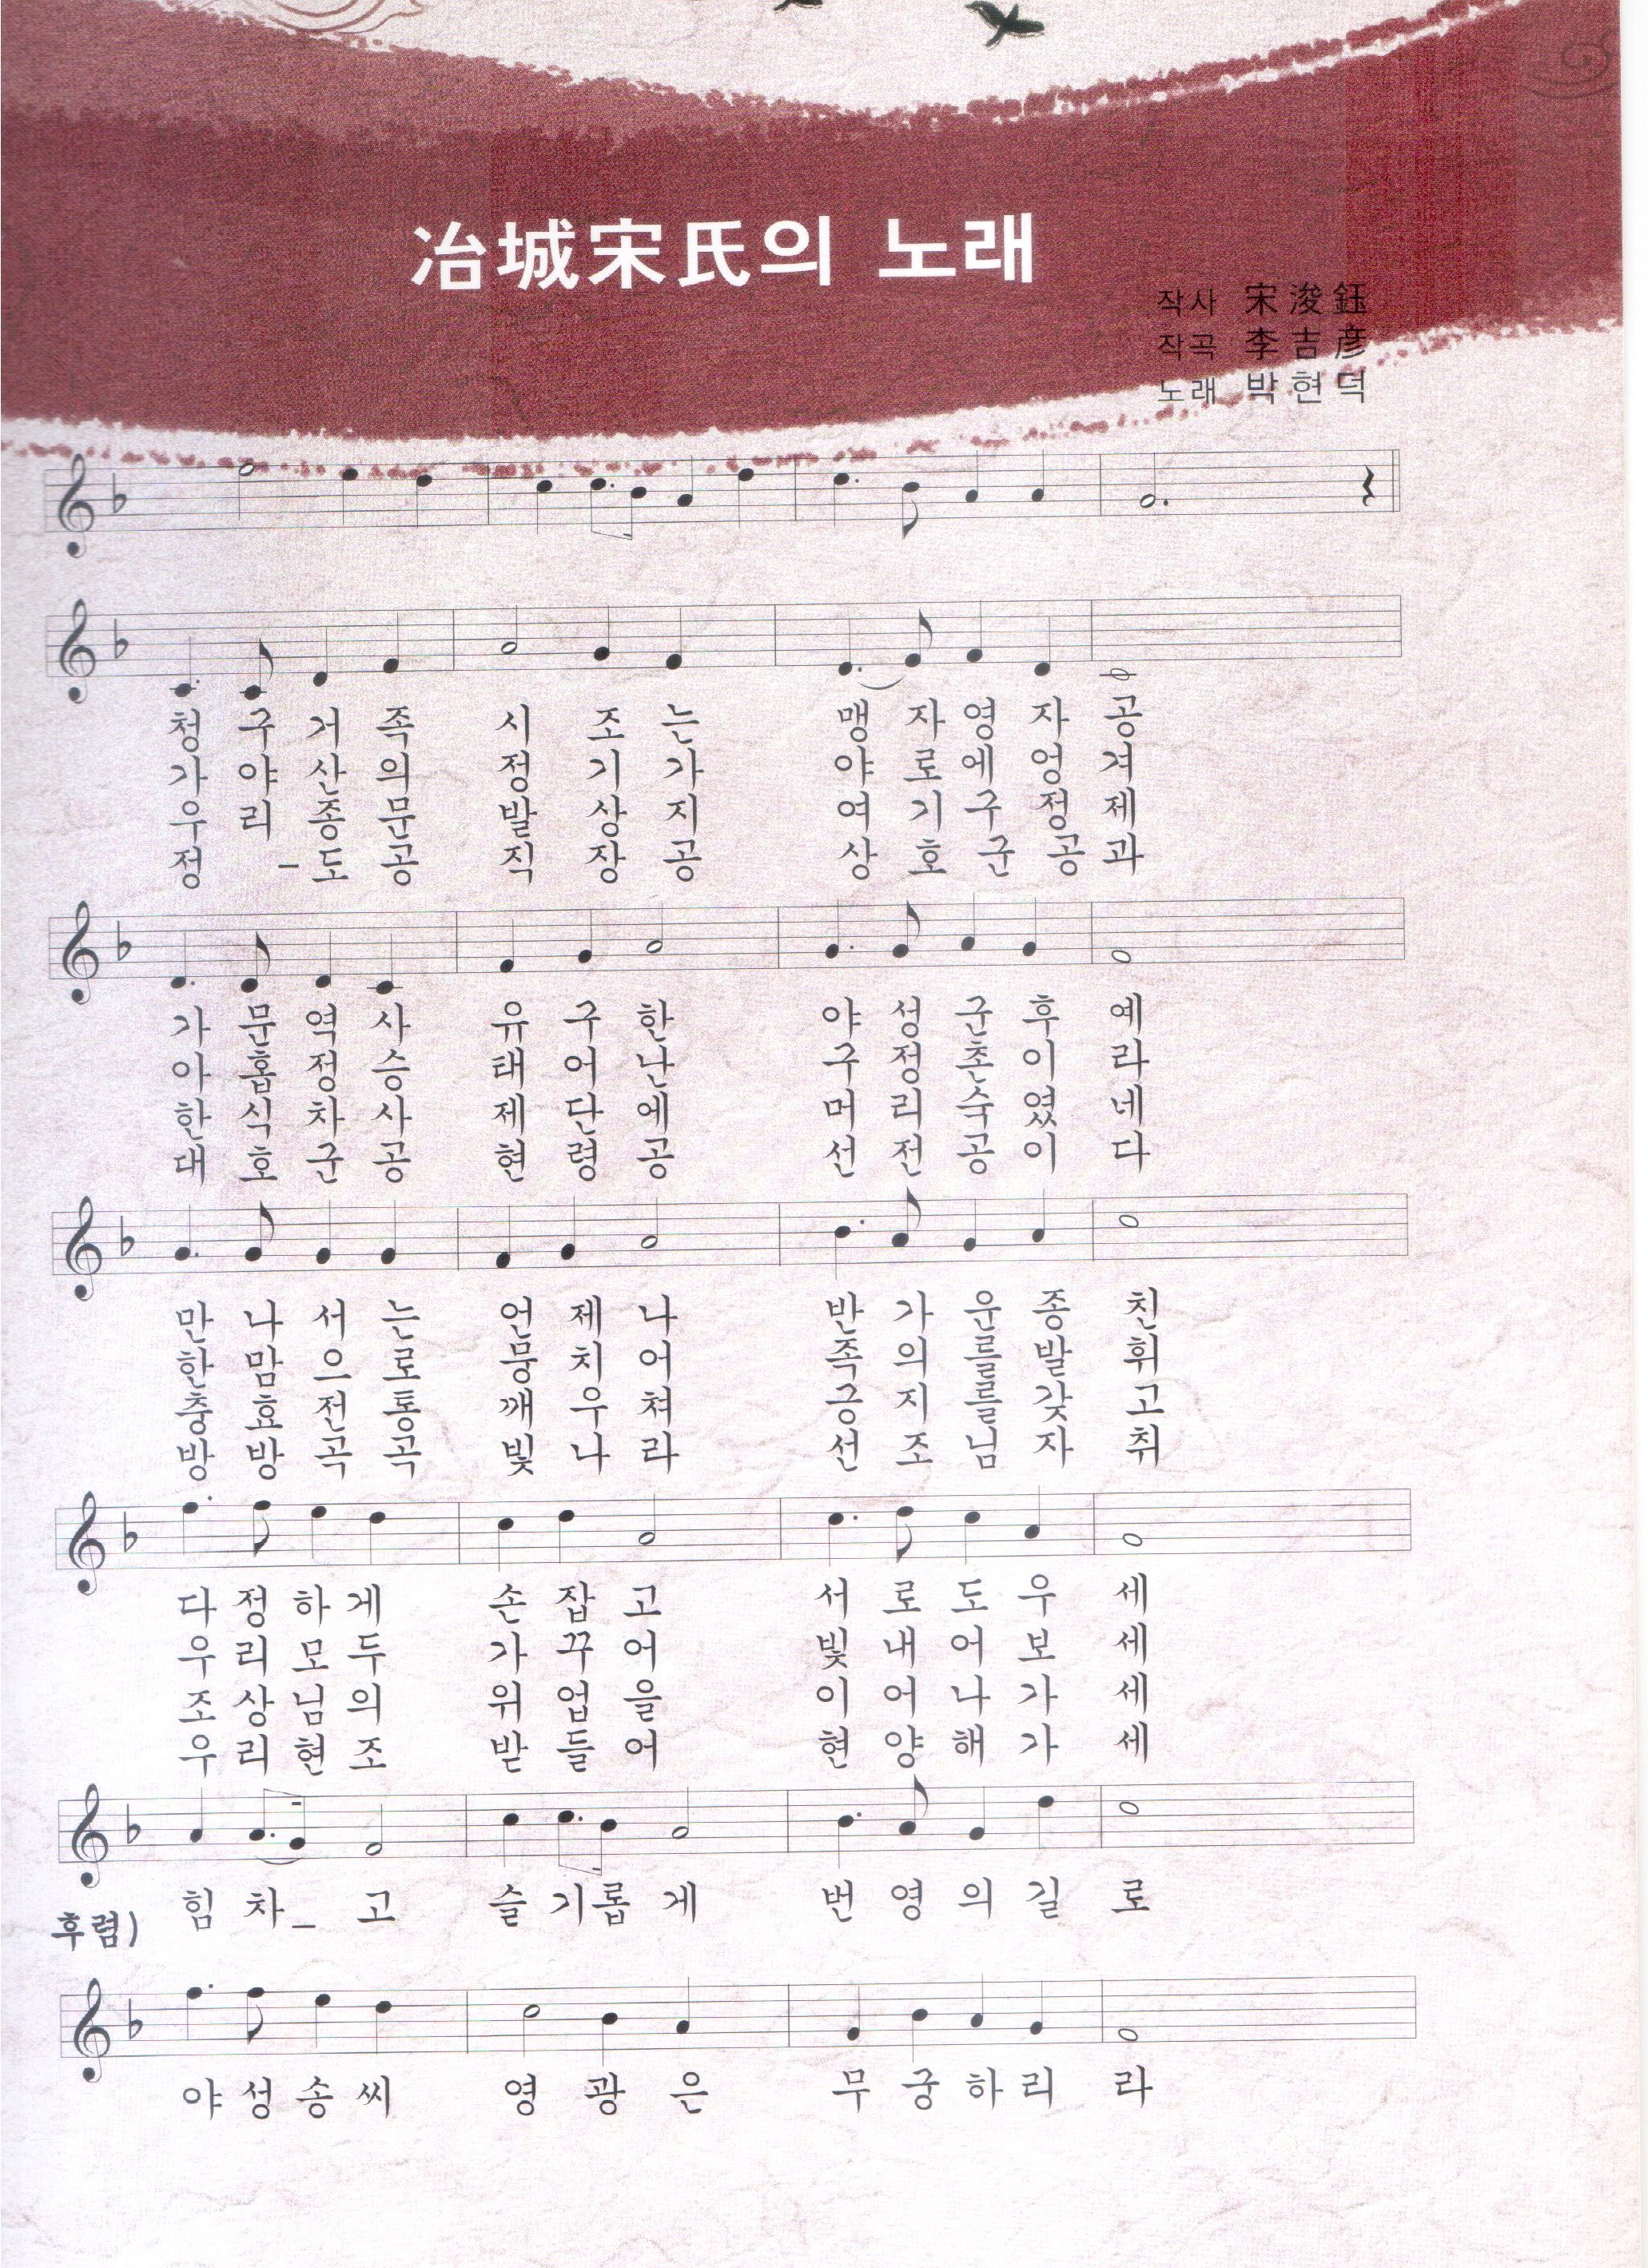 冶城宋氏의 노래
작사 宋浚鈺
작곡 李吉彦
노래 박현덕
청 구 거 족 시 조 는 맹 자 영 자 공
가 야 산 의 정 기 가 야 로 에 엉 겨
우 리 종 문 발 상 지 여 기 구 정 제
정 - 도 공 직 장 공 상 호 군 공 과
가 문 역 사 유 구 한 야 성 군 후 예
아 흡 정 승 태 어 난 구 정 존 이 라
한 식 차 사 제 단 에 머 리 숙 였 네
대 호 군 공 현 령 공 선 전 공 이 다
만 나 서 는 언 제 나 반 가 운 종 친
한 맘 으 로 뭉 치 어 족 의 를 발 휘
충 효 전 통 깨 우 쳐 긍 지 를 갖 고
방 방 곡 곡 빛 나 라 선 조 님 자 취
다 정 하 게 손 잡 고 서 로 도 우 세
우 리 모 두 가 꾸 어 빛 내 어 보 세
조 상 님 의 위 업 을 이 어 나 가 세
우 리 현 조 받 들 어 현 양 해 가 세
후렴) 힘 차 - 고 슬 기 롭 게 번 영 의 길 로
야 성 송 씨 영 광 은 무 궁 하 리 라